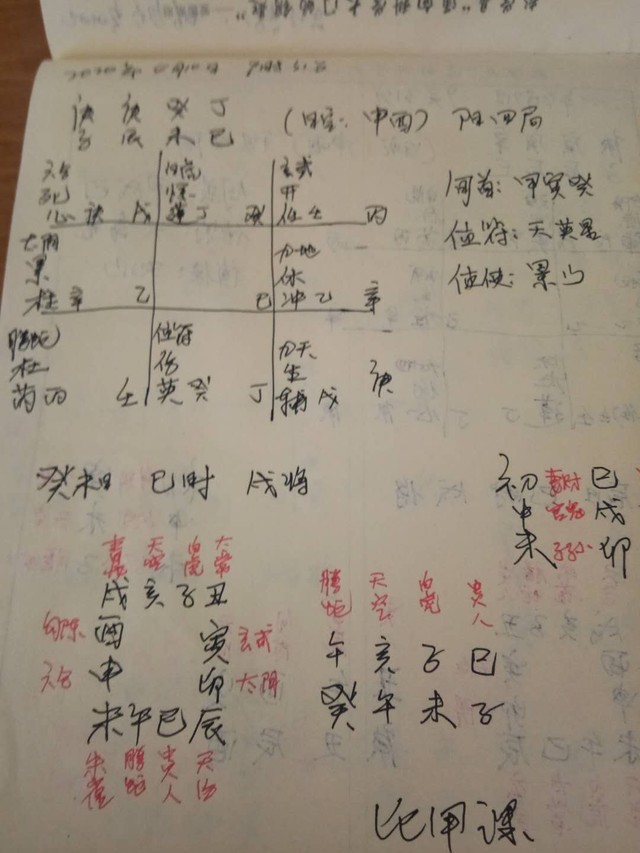 2020年
庚 庚 癸 丁
子 辰 未 巳
(日空: 申酉) 阳四局
旬首: 甲寅癸
值符: 天英星
值使: 景门
六合
死
心 庚 戊
白虎
惊
蓬 丁 癸
玄武
开
任 壬 丙
太阴
景
柱 辛 乙
己
九地
休
冲 乙 辛
腾蛇
杜
芮 丙 壬
值符
伤
英 癸 丁
九天
生
辅 戊 庚
癸未日 巳时 戌将
初 妻财 巳
中 官鬼 戌
末 子孙 卯
青龙 天空 白虎 太常
戌 亥 子 丑
勾陈 酉 寅 玄武
六合 申 卯 太阴
未 午 巳 辰
朱雀 腾蛇 贵人 天后
腾蛇 天空 白虎 贵人
午 亥 子 巳
癸 午 未 子
比用课